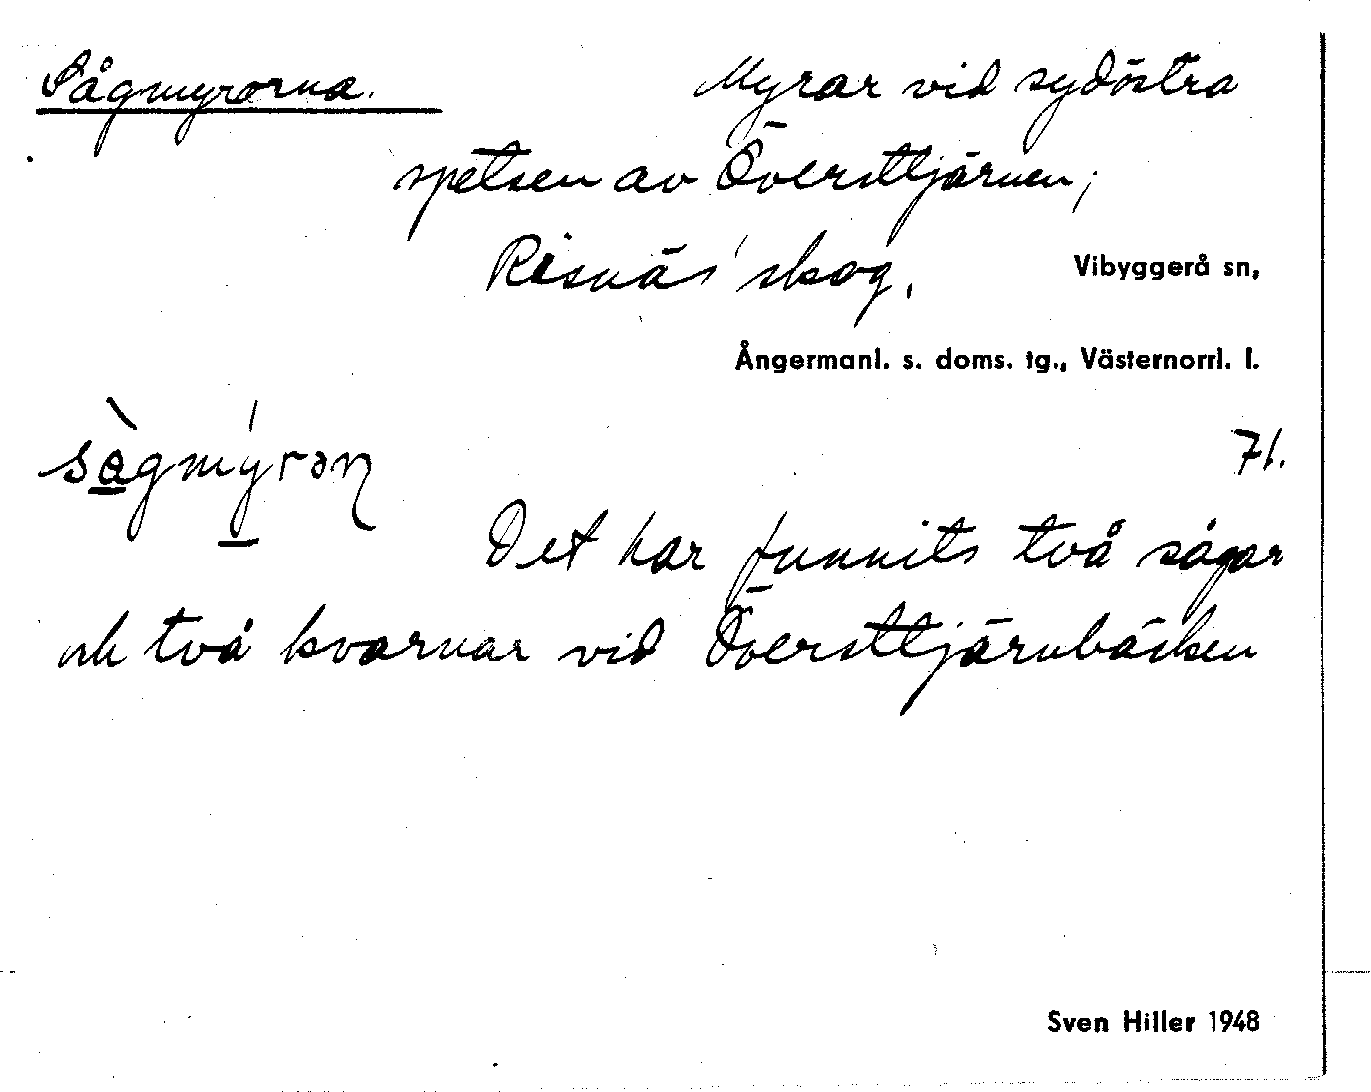 Sågmyrorna. Myrar vid sydöstra
spetsen av Översttjärnen;
Risnäs' skog. Vibyggerå sn,
Ångermanl. s. doms. tg., Västernorrl. l.
71.
Det har funnits två sågar
och två kvarnar vid Översttjärnbäcken
Sven Hiller 1948